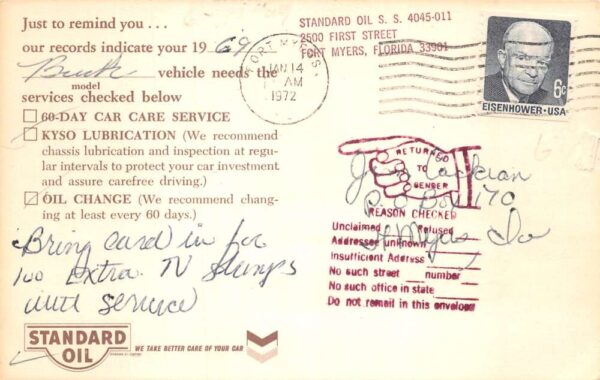 Just to remind you . . .
our records indicate your 19 69
Buick vehicle needs the
model
services checked below
60-DAY CAR CARE SERVICE
KYSO LUBRICATION (We recommend
chassis lubrication and inspection at regu-
lar intervals to protect your car investment
and assure carefree driving.)
OIL CHANGE (We recommend chang-
ing at least every 60 days.)
Bring card in for
100 Extra TV Stamps
with service
STANDARD
OIL
WE TAKE BETTER CARE OF YOUR CAR
FORT MYERS
JAN 14
AM
1972
STANDARD OIL S. S. 4045-011
2500 FIRST STREET
FORT MYERS, FLORIDA 33901
6c
EISENHOWER·USA
RETURNED
TO
SENDER
Jim
P.O Box 170
Ft Myers
REASON CHECKED
Unclaimed Refused
Addressee unknown
Insufficient Address
No such street number
No such office in state
Do not remail in this envelope